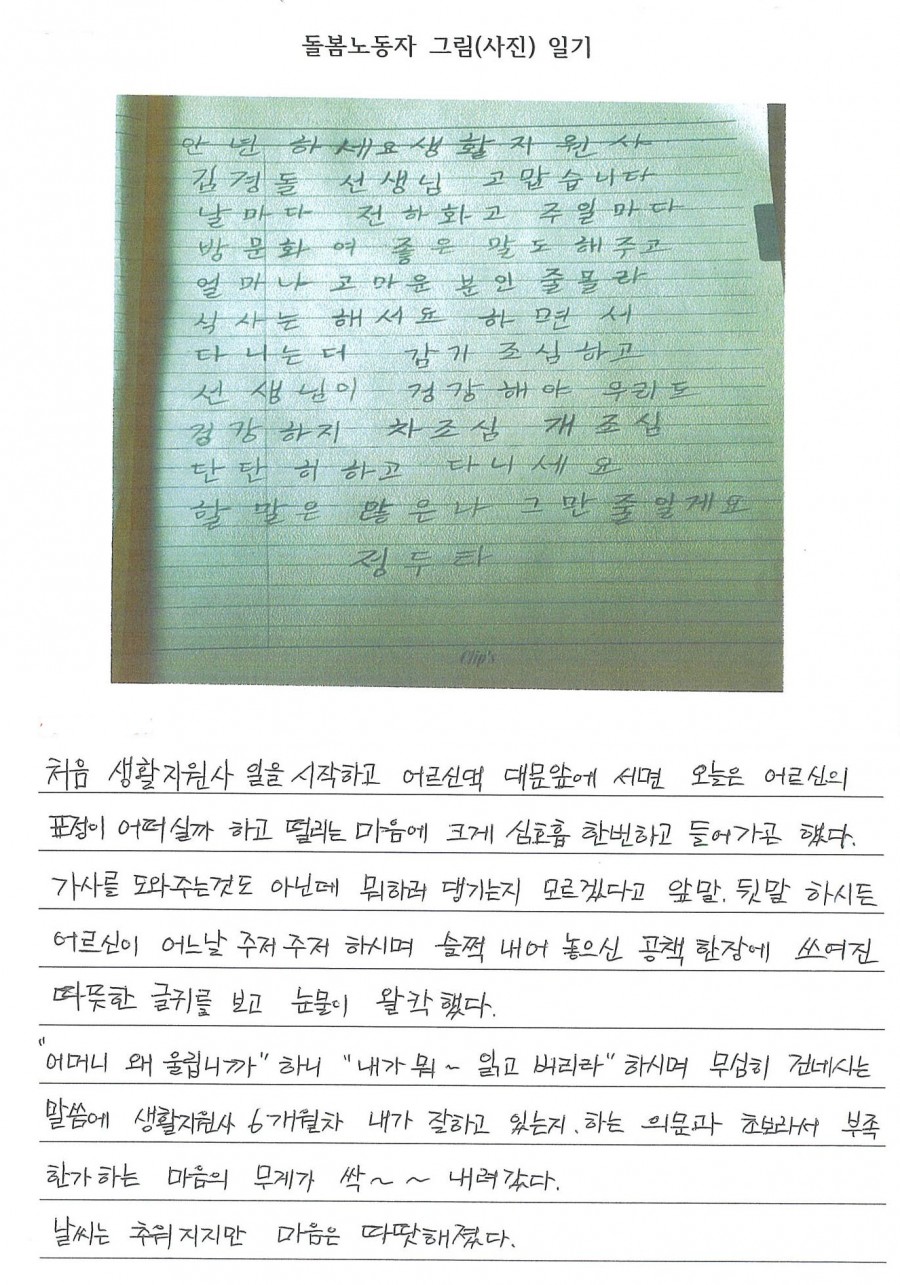 돌봄노동자 그림(사진) 일기
안년 하세요생활지원사
김경돌 선생님 고맙습니다
날마다 전하화고 주일마다
방문화여 좋은 말도 해주고
얼마나 고마운 분인 줄몰라
식사는 해서요 하면서
다니는더 감기 조심하고
선생님이 겅강해야 우리도
겅강하지 차조심 개조심
단단히하고 다니세요
할 말은 많은나 그만 줄일게요
정두타
Clip's
처음 생활지원사 일을 시작하고 어르신댁 대문앞에 서면 오늘은 어르신의
표정이 어떠실까 하고 떨리는 마음에 크게 심호흡 한번하고 들어가곤 했다.
가사를 도와주는것도 아닌데 뭐하러 댕기는지 모르겠다고 앞말, 뒷말 하시든
어르신이 어느날 주저주저 하시며 슬쩍 내어 놓으신 공책 한장에 쓰여진
따뜻한 글귀를 보고 눈물이 왈칵했다.
"어머니 왜 울립니까" 하니 "내가 뭐~ 읽고 버리라" 하시며 무심히 건네시는
말씀에 생활지원사 6개월차 내가 잘하고 있는지. 하는 의문과 초보라서 부족
한가하는 마음의 무게가 싹~~ 내려갔다.
날씨는 추워지지만 마음은 따땃해졌다.